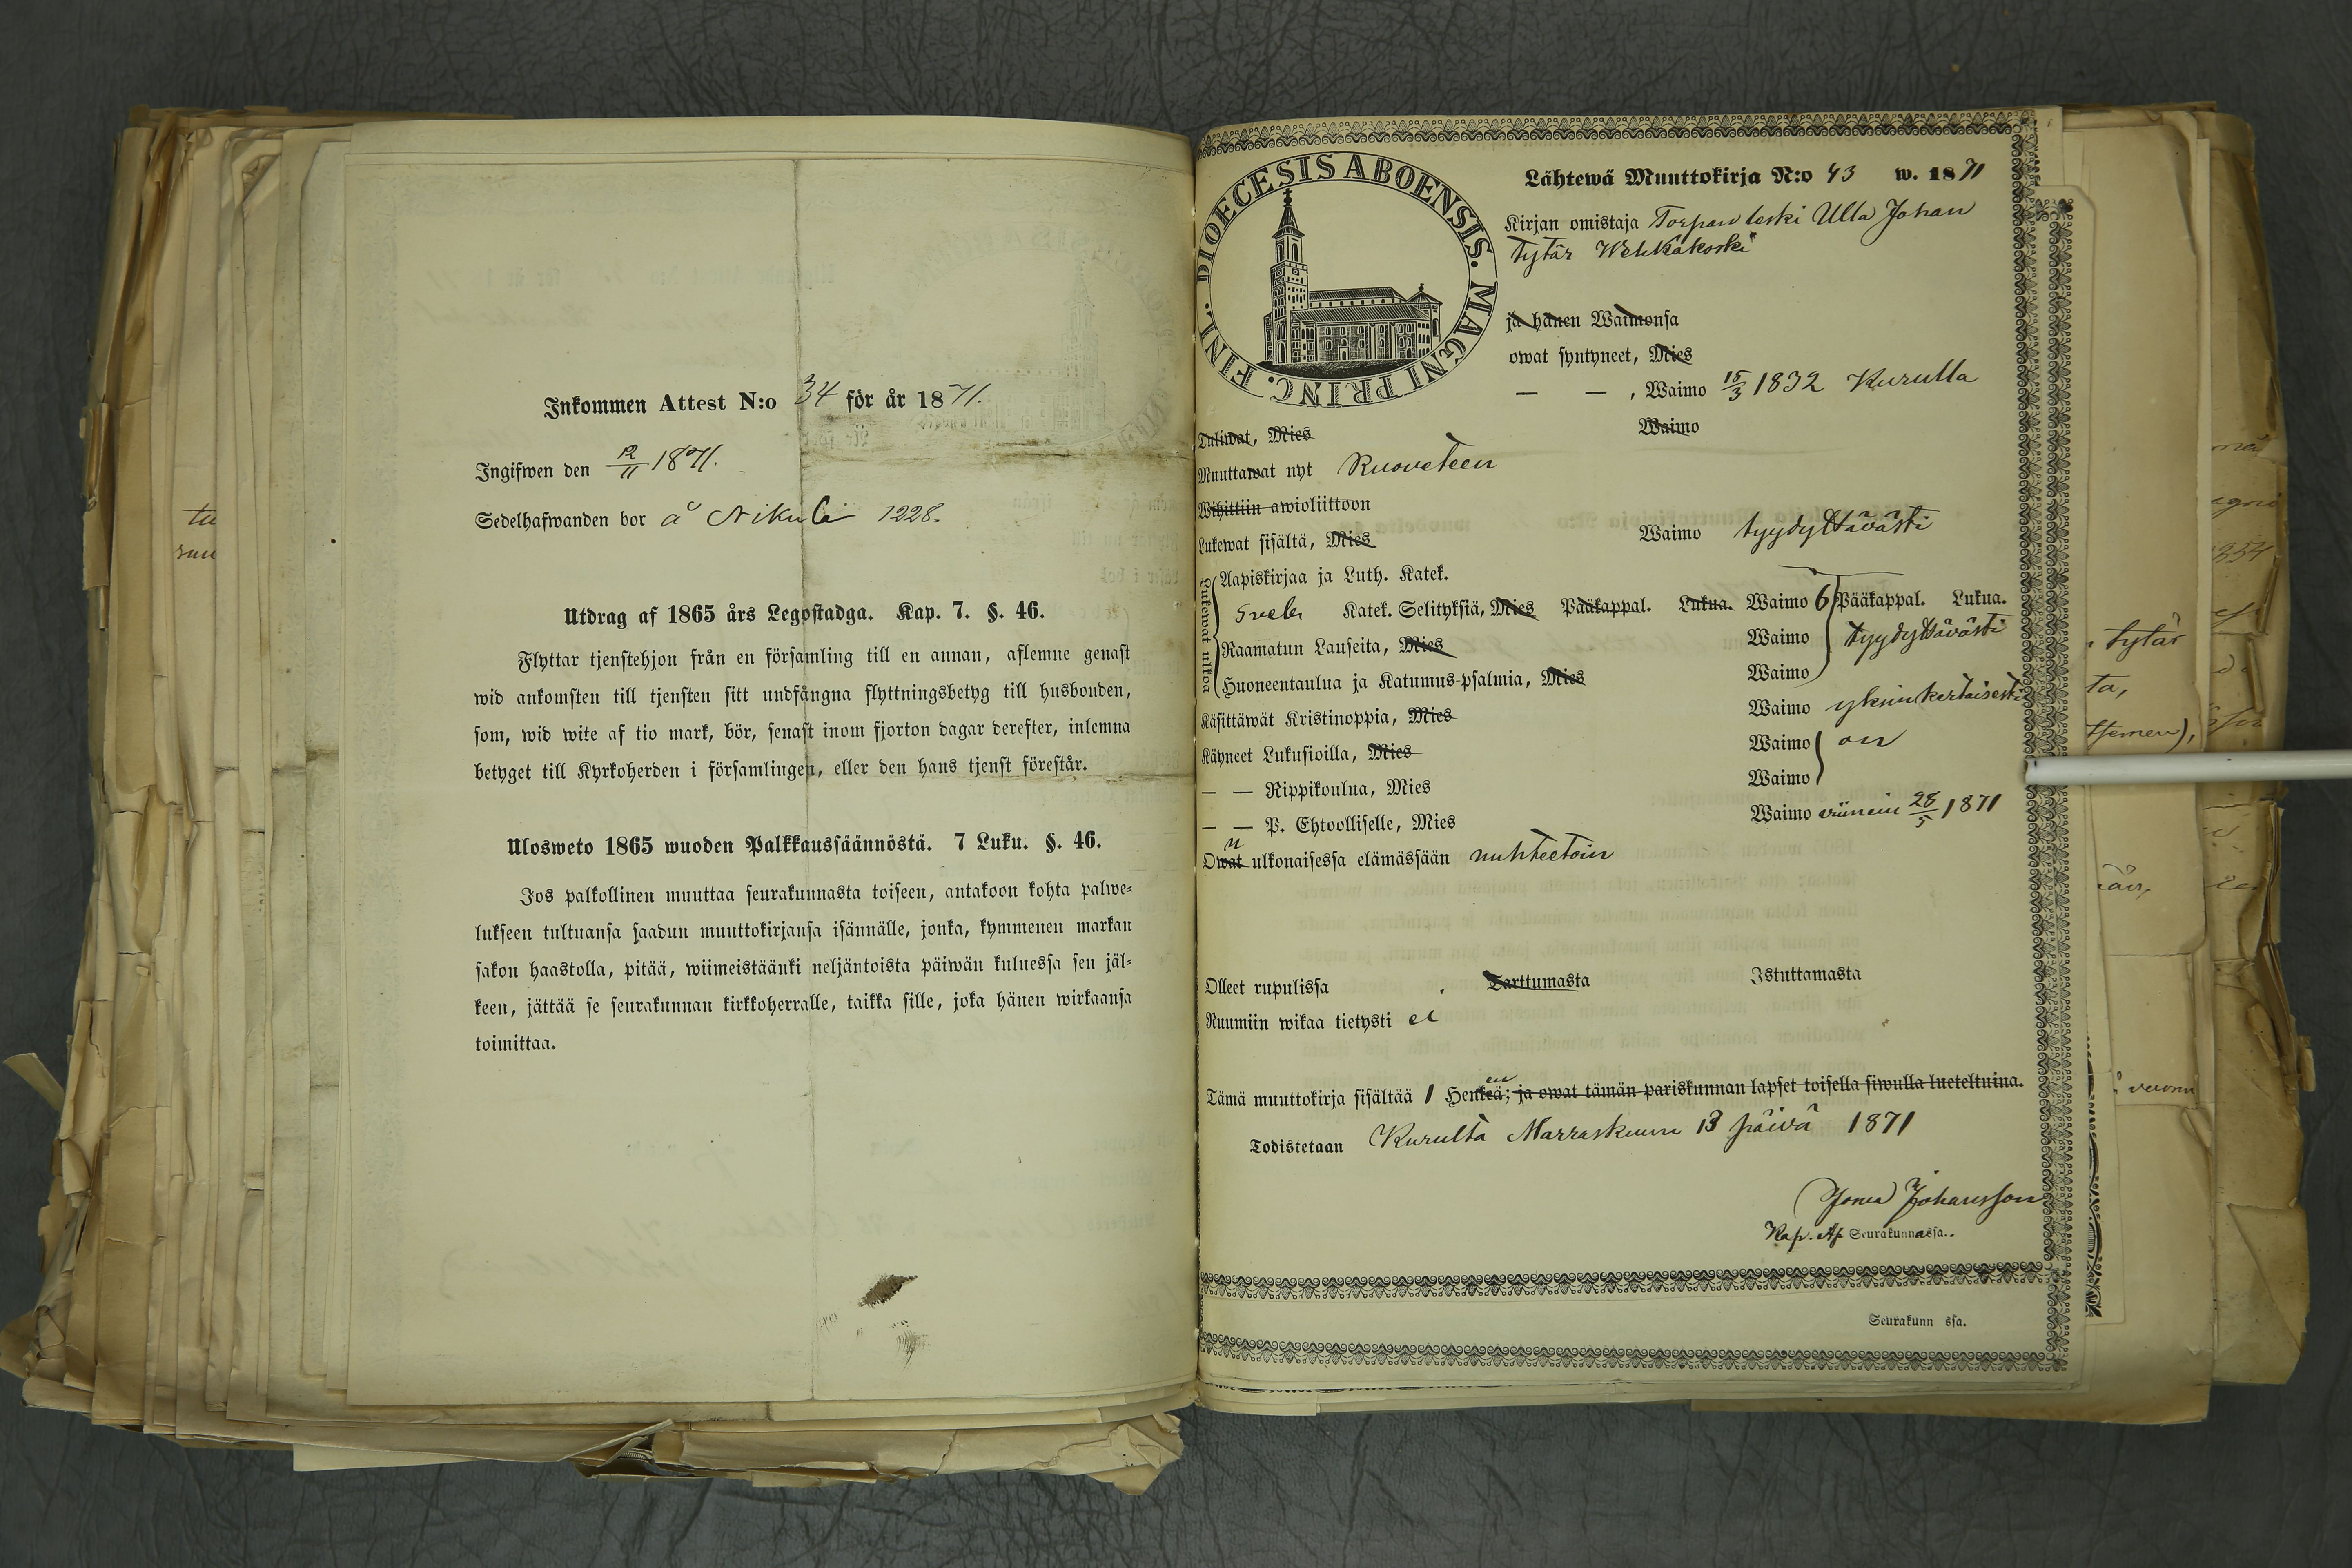 Inkommen Attest N:o 34 för år 1871.
Ingifwen den 12/11 1871.
Sedelhafwanden bor å Nikula 1228.
Utdrag af 1865 års Legostadga. Kap. 7. §. 46.
Flyttar tjenstehjon från en församling till en annan, aflemne genast
wid ankomsten till tjensten sitt undfångna flyttningsbetyg till husbonden,
som, wid wite af tio mark, bör, senast inom fjorton dagar derefter, inlemna
betyget till Kyrkoherden i församlingen, eller den hans tjenst förestår.
Ulosweto 1865 wuoden Palkkaussäännöstä. 7 Luku. §. 46.
Jos palkollinen muuttaa seurakunnasta toiseen, antakoon kohta palwe-
lukseen tultuansa saadun muuttokirjansa isännälle, jonka, kymmenen markan
sakon haastolla, pitää, wiimeistäänki neljäntoista päiwän kuluessa sen jäl-
keen, jättää se seurakunnan kirkkoherralle, taikka sille, joka hänen wirkaansa
toimittaa.
DIOECESIS ABOENSIS. MAGNI PRINC. FINL.
Lähtewä Muuttokirja N:o 43 w. 1871
Kirjan omistaja Torpan leski Ulla Johan
tytär Wehkakoski
ja hänen Waimonsa
owat syntyneet, Mies
— — , Waimo 15/3 1832 Kurulla
Tuliwat, Mies Waimo
Muuttawat nyt Ruoveteen
Wihittiin awioliittoon
Lukewat sisältä, Mies Waimo tyydyttävästi
Lukewat ulkoa
Aapiskirjaa ja Luth. Katek.
Sveb. Katek. Selityksiä, Mies Pääkappal. Lukua. Waimo 6 Pääkappal. Lukua.
Raamatun Lauseita, Mies Waimo tyydyttävästi
Huoneentaulua ja Katumus-psalmia, Mies Waimo
Käsittäwät Kristinoppia, Mies Waimo yksinkertaisesti
Käyneet Lukusioilla, Mies Waimo on
— — Rippikoulua, Mies Waimo
— — P. Ehtoolliselle, Mies Waimo viimein 28/5 1871
Owat n ulkonaisessa elämässään nuhteetoin
Olleet rupulissa Tarttumasta Istuttamasta
Ruumiin wikaa tietysti ei
Tämä muuttokirja sisältää 1 Henkeä en; ja owat tämän pariskunnan lapset toisella siwulla lueteltuina.
Todistetaan Kurulta Marraskuun 13 päivä 1871
Johansson
Kap. Ap. Seurakunnassa..
Seurakunn ssa.
tytär
ta,